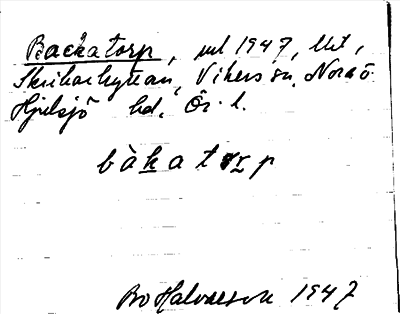 Backatorp, ut 1947, lht,
Skrikarhyttan, Vikers sn, Nora o
Hjulsjö hd, Ör. l.
bàkatorp
Bo Halvarson 1947